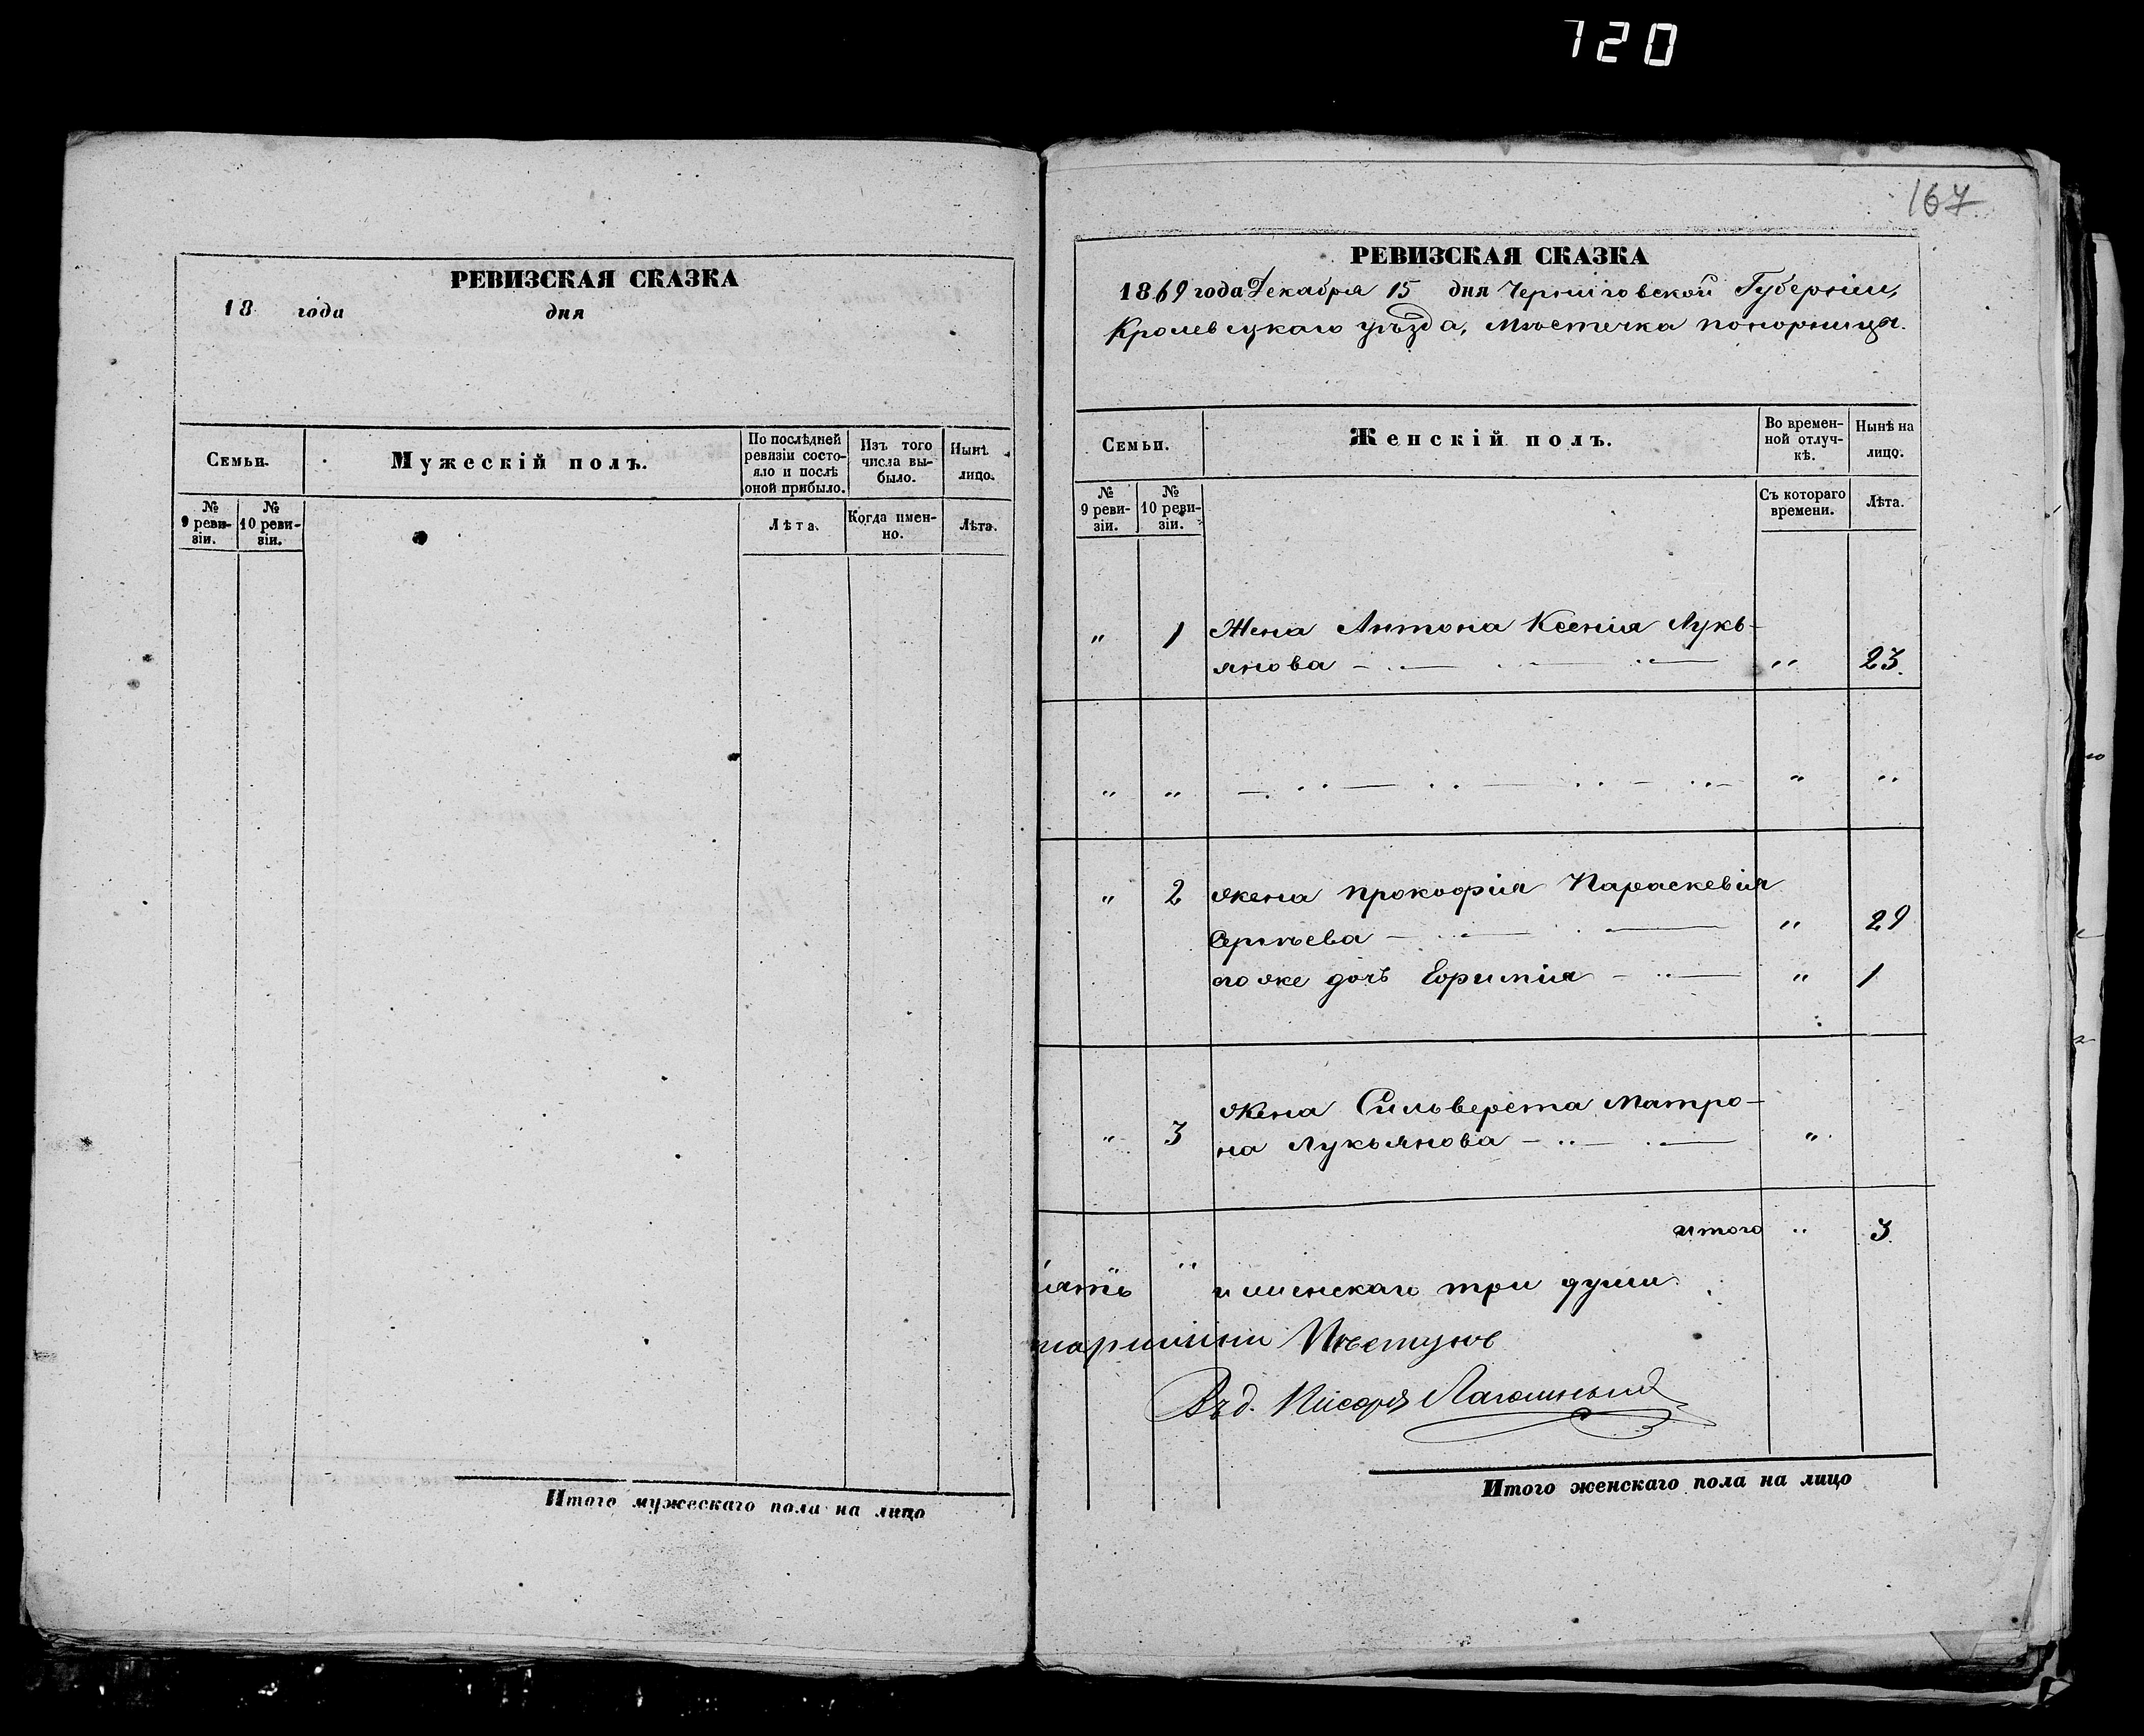 720
РЕВИЗСКАЯ СКАЗКА
18 года дня
Семьи.
Мужескій полъ.
По послѣдней ревизіи состояло и послѣ оной прибыло.
Изъ того числа выбыло.
Нынѣ лицо.
№ 9 ревизіи.
№ 10 ревизіи.
Лѣта.
Когда именно.
Лѣта.
Итого мужескаго пола на лицо
167
РЕВИЗСКАЯ СКАЗКА
1869 года Декабря 15 дня Черниговской Губерніи,
Кролевецкаго уѣзда, Мѣстечка Понорница.
Семьи.
Женскій полъ.
Во временной отлучкѣ.
Нынѣ на лицо.
№ 9 ревизіи.
№ 10 ревизіи.
Съ котораго времени.
Лѣта.
" 1 Жена Антона Ксенія Лукь-
янова " 23.
" " " "
" 2 Жена Прокофія Параскевія
Сергѣева " 29
его же дочь Ефимія " 1
" 3 Жена Сильверста Матро-
на Лукьянова "
итого " 3
пять " и женскаго три души
Пѣстуновъ
Итого женскаго пола на лицо